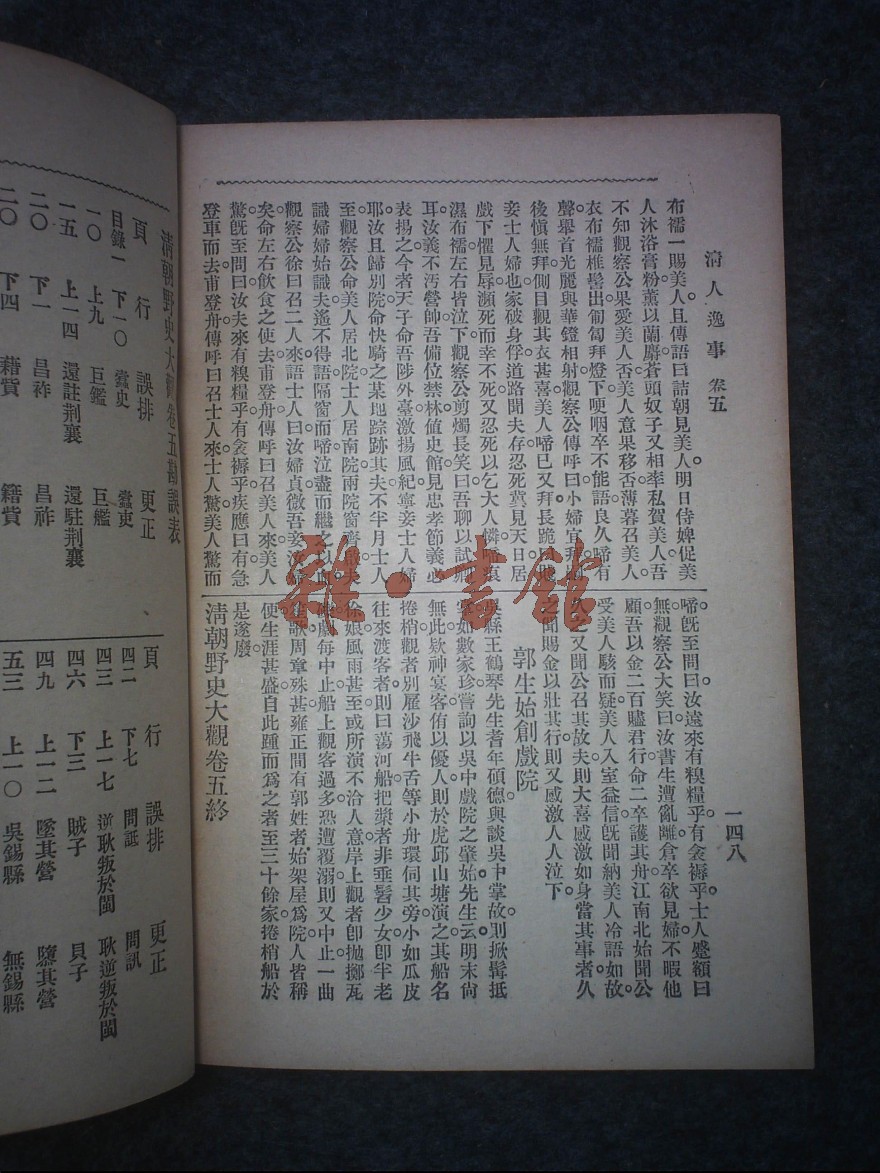 清人逸事 卷五
一四八
布襦一賜美人且傳語曰詰朝見美人明日侍婢促美
人沐浴膏粉薰以蘭麝蒼頭奴子又相率私賀美人吾
不知觀察公果愛美人否美人意果移否薄暮召美人
衣布襦椎髻出匍匐拜燈下哽咽卒不能語良久啼有
聲舉首光麗與華鐙相射觀察公傳呼曰小婦宜拜
後慎無拜側目觀其衣甚喜美人啼已又拜長跪曰
妾士人婦也家破身俘道路聞夫存忍死冀見天日居
戲下懼見辱瀕死而幸不死又忍死以乞大人憐
濕布襦左右皆泣下觀察公剪燭長笑曰吾聊以試
耳汝義不汚營帥吾備位禁林值史館見忠孝節義必
表揚之今者天子命吾陟外臺激揚風紀寧妾士人婦
耶汝且歸別院命快騎之某地踪跡其夫不半月士人
至觀察公命美人居北院士人居南院兩院窗
識婦婦始識夫遙不得語隔窗而啼泣盡而繼之以
觀察公徐曰召二人來語士人曰汝婦貞微吾妾汝
矣命左右飲食之使去甫登舟傳呼曰召美人來美人
驚旣至問曰汝夫來有糗糧乎有衾褥乎疾應曰有急
登車而去甫登舟傳呼曰召士人來士人驚美人驚而
啼旣至問曰汝遠來有糗糧乎有衾褥乎士人蹙額曰
無觀察公大笑曰汝書生遭亂離倉卒欲見婦不暇他
顧吾以金二百贐君行命二卒護其舟江南北始聞公
受美人駭而疑美人入室益信旣聞納美人冷語如故
久之又聞公召其故夫則大喜感激如身當其事者久
之聞賜金以壯其行則又感激人人泣下
郭生始創戲院
吳縣王鶴琴先生耆年碩德與談吳中掌故則掀髯抵
掌如數家珍嘗詢以吳中戲院之肇始先生云明末尙
無此欵神宴客侑以優人則於虎邱山塘演之其船名
捲梢觀者別雇沙飛牛舌等小舟環伺其旁小如瓜皮
往來渡客者則曰蕩河船把槳者非垂髫少女卽半老
徐娘風雨甚至或所演不洽人意岸上觀者卽抛擲瓦
戲每中止船上觀客過多恐遭覆溺則又中止一曲
歌周章殊甚雍正間有郭姓者始架屋爲院人皆稱
便生涯甚盛自此踵而爲之者至三十餘家捲梢船於
是遂廢
清朝野史大觀卷五終
清朝野史大觀卷五勘誤表
頁 行 誤排 更正
目錄一 下一〇 蠹史 蠹吏
一〇 上九 巨鑑 巨艦
一五 上一四 還註荆襄 還駐荆襄
二〇 下一 昌祚 昌祚
二〇 下四 藉貲 籍貲
頁 行 誤排 更正
四二 下七 問詆 問訊
四三 上一七 逆耿叛於閩 耿逆叛於閩
四六 下三 賊子 貝子
四九 上一二 墜其營 隳其營
五三 上一〇 吳錫縣 無錫縣
雜·書館